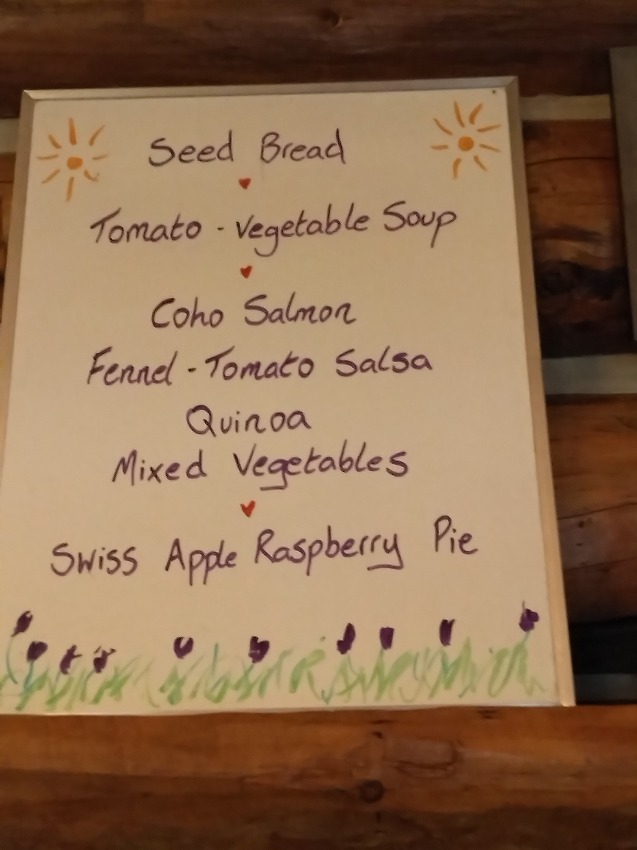 Seed Bread
Tomato - Vegetable Soup
Coho Salmon
Fennel - Tomato Salsa
Quinoa
Mixed Vegetables
Swiss Apple Raspberry Pie